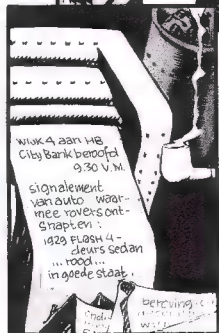 WIJK 4 aan HB
City Bank beroofd
9.30 V.M.
signalement
van auto waar-
mee rovers ont-
snapten:
1929 FLASH 4-
deurs sedan
...rood...
in goede staat.
beroving